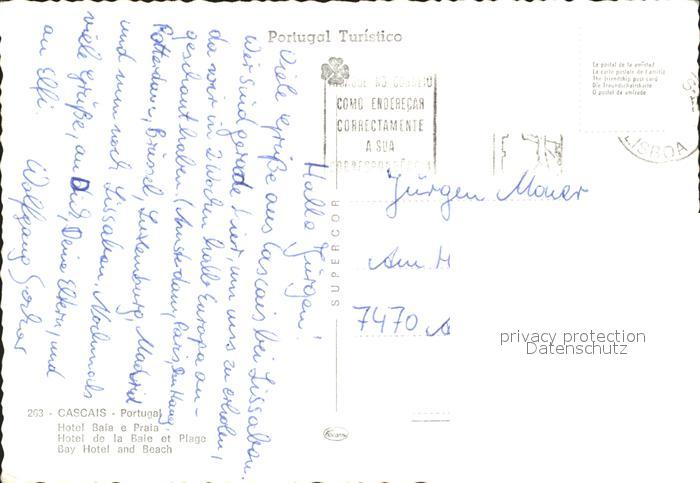 Portugal Turístico
Hallo Jürgen!
Viele Grüße aus Cascais bei Lissabon.
Wir sind gerade hier, um uns zu erholen,
da wir in 2 Wochen halb Europa an-
geschaut haben. (Amsterdam, Paris, Den Haag,
Rotterdam, Brüssel, Luxemburg, Madrid
und nun noch Lissabon. Nochmals
viele Grüße, an Dich, Deine Eltern, und
an Elfi.
Wolfgang
INDIQUE NO CORREIO
COMO ENDEREÇAR
CORRECTAMENTE
A SUA
CORRESPONDÊNCIA
Le postal de la amistad
La carte postale de l'amitié
The friendship post card
Die Freundschaftskarte
O postal da amizade
LISBOA
SUPERCOR
Jürgen
Am H
7470 A
privacy protection
Datenschutz
263 - CASCAIS - Portugal
Hotel Baía e Praia
Hotel de la Baie et Plage
Bay Hotel and Beach